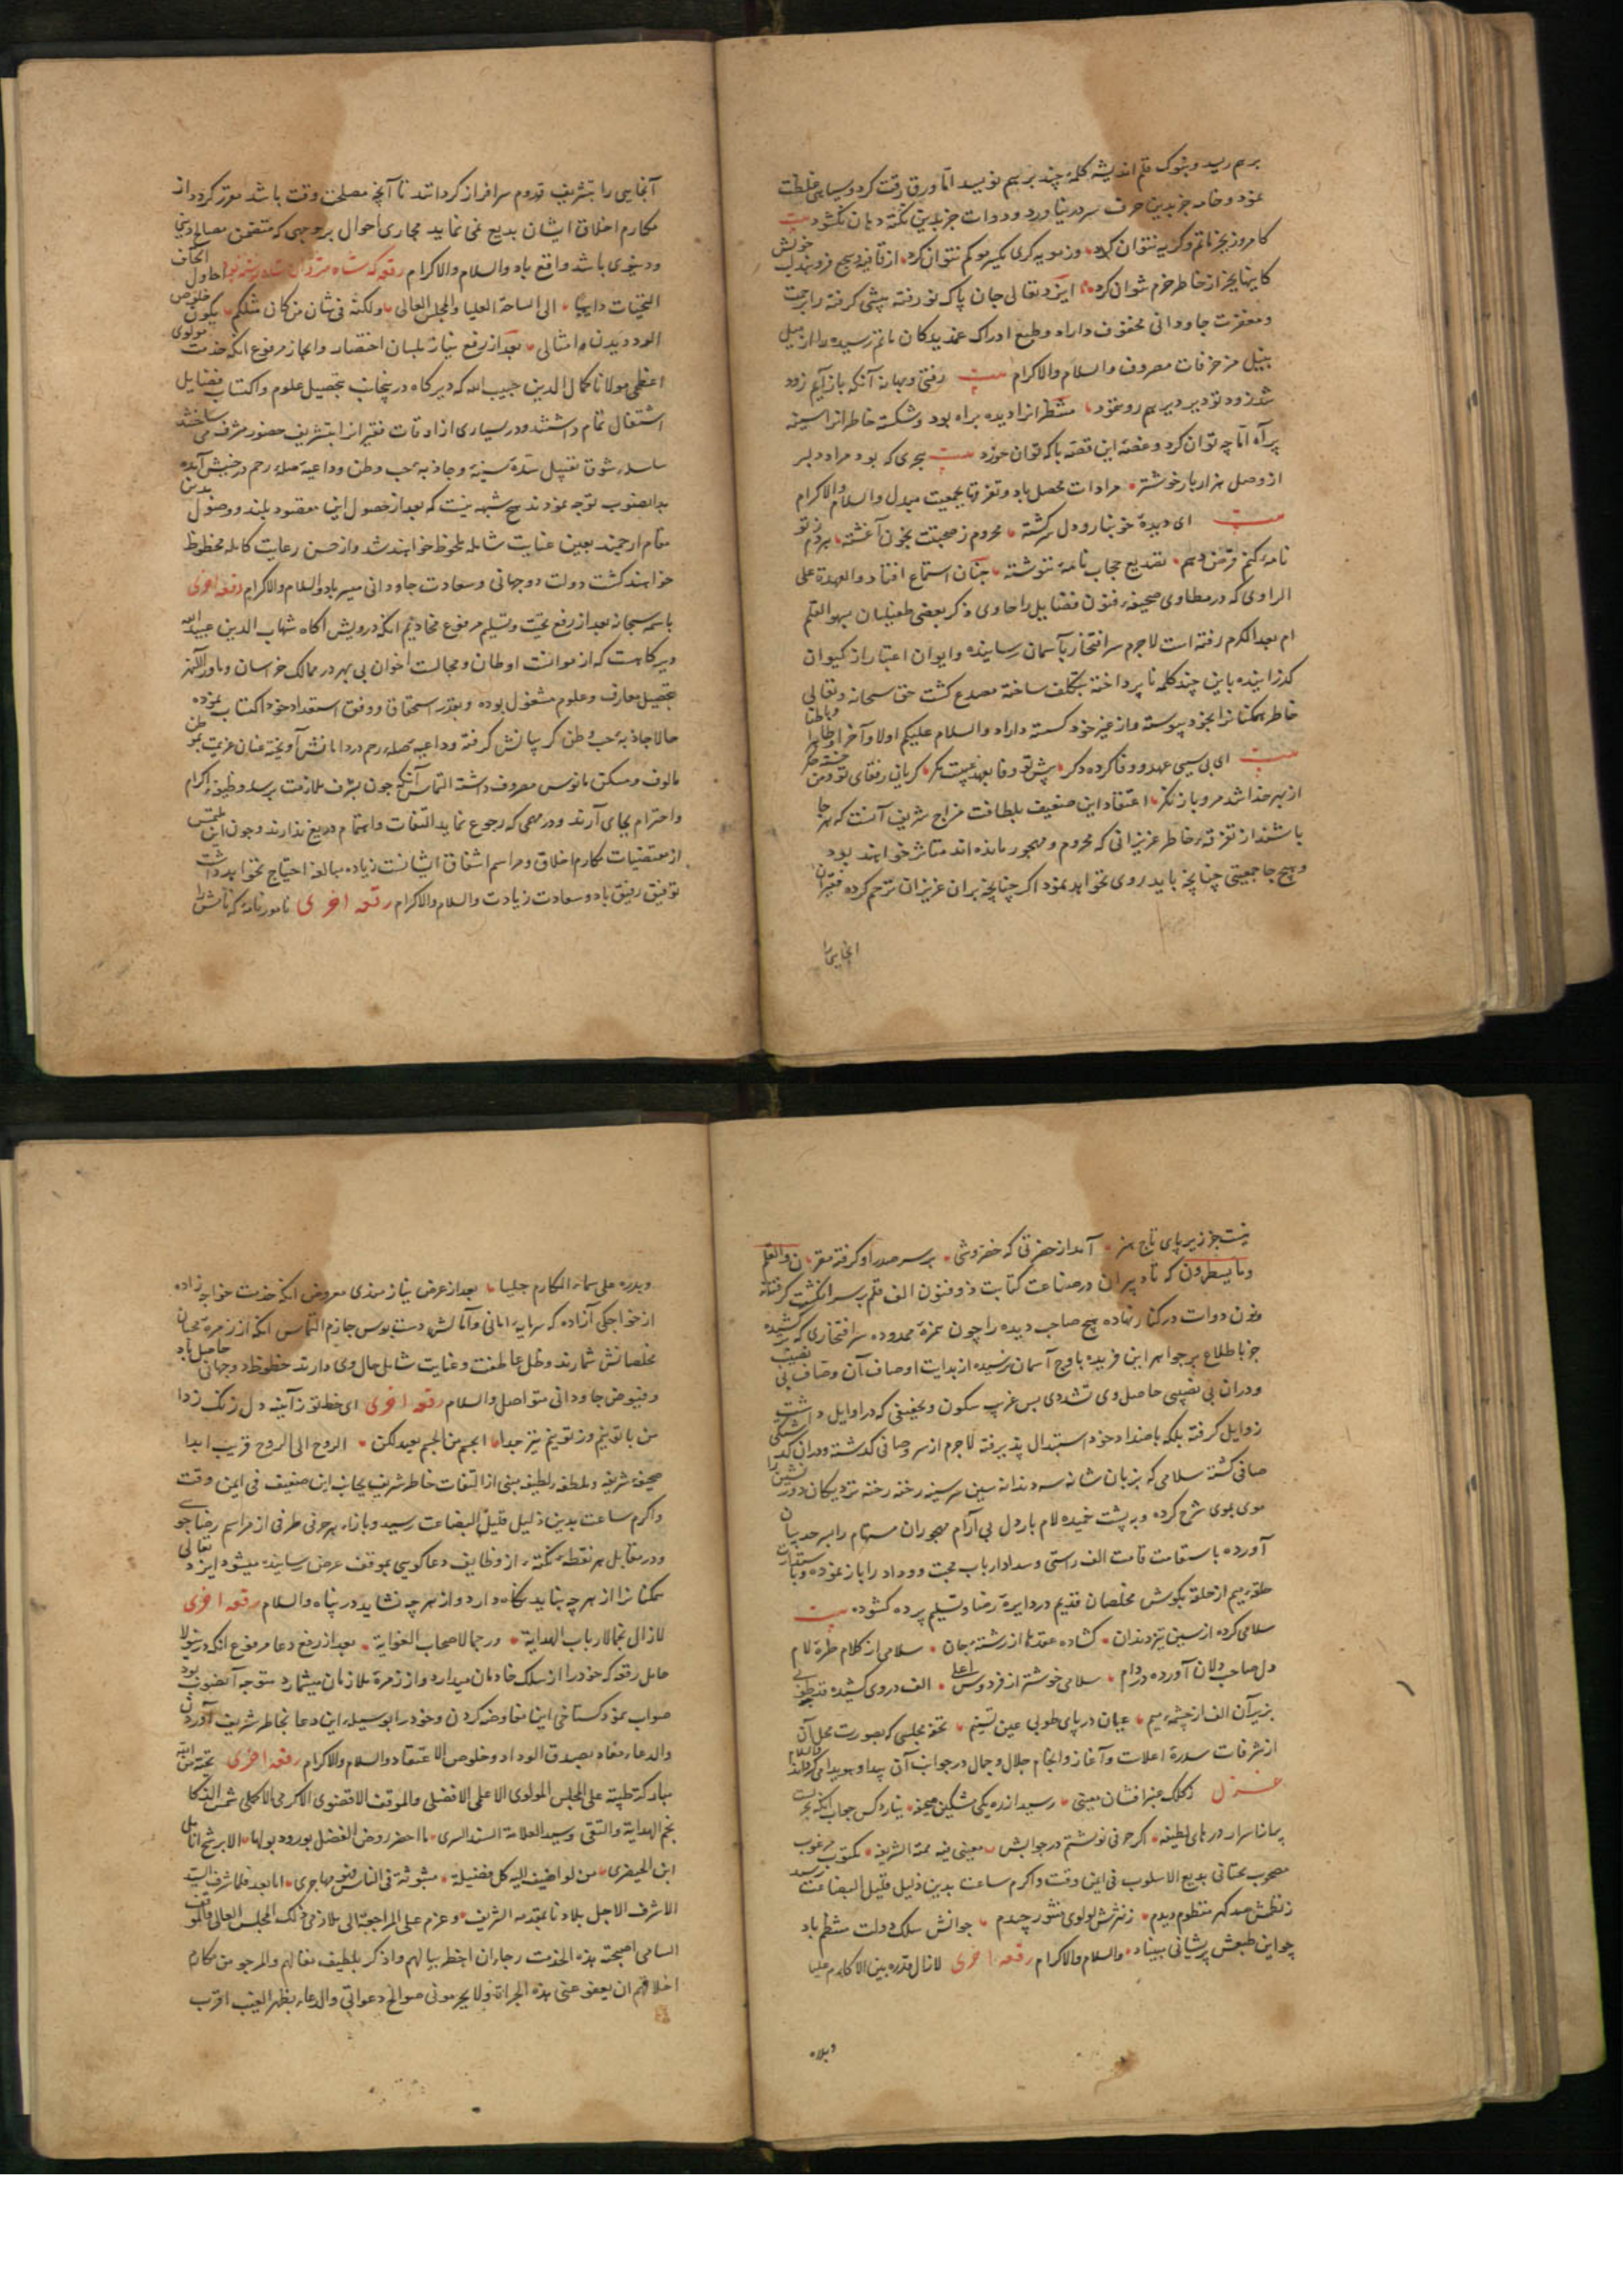 برهم رسید و بنوک قلم اندیشه کلمهٔ چند برهم نویسد اما ورق رقت کرد و سیاهی غلظت
نمود و خامه جز بدین حرف سر در نیاورد و دوات جز بدین نکته دهان نکشود بیت
کامروز بجز ماتم و کریه نتوان کرد وز مویه کری یکسر مو کم نتوان کرد از قافیه هیچ فرو بند لب خویش
کاینها بجز از خاطر خرم نتوان کرد ایزد تعالی جان پاک نو رفته پیشی کرفته را برحمت
و مغفرت جاودانی محفوف داراد و طبع ادراک غمدیدکان ماتم رسیده را از میل
بنیل مزخرفات مصروف والسلام والاکرام بیت رفتی و بهانه آنکه بازآیم زود
شد زود تو دیر دیر هم رو ننمود منتظرانرا دیده براه بود و شکسته خاطرانرا سینه
پر آه اما چه توان کرد و غصهٔ این قصه با که توان خورد بیت هجری که بود مراد دلبر
از وصل هزار بار خوشتر مرادات محصل باد و تفرقها بجمعیت مبدل والسلام والاکرام
بیت ای دیده خونبار و دل سرکشته محروم ز صحبتت بخون آغشته هر دم ز تو
نامه کنم فرض و نهم تصدیع حجاب نامهٔ ننوشته چنان استماع افتاد والعهدة علی
الراوی که در مطاوی صحیفهٔ فنون فضایل را حاوی ذکر بعضی طفیلیان بسهو القلم
ام بعمد الکرم رفته است لاجرم سر افتخار بآسمان رسانیده و ایوان اعتبار از کیوان
کذرانیده باین چند کلمه ناپرداخته بتکلف ساخته مصدع کشت حق سبحانه و تعالی
خاطر همکنانرا بخود پیوسته و از غیر خود کسسته داراد والسلام علیکم اولا وآخرا وظاهرا وباطنا
بیت ای بی سببی عهد و وفا کرده دکر پیش تو وفا بعهد عیبست مکر کریان ز قفای تو و من خسته جکر
از بهر خدا شد مرو باز نکر اعتقاد این ضعیف بلطافت مزاج شریف آنست که هر جا
باشند از تفرقه خاطر عزیزانی که محروم و مهجور مانده اند متاثر خواهند بود
و هیچ جا جمعیتی چنانچه باید روی نخواهد نمود اکر چنانچه بران عزیزان ترحم کرده فقیران
آنجایی را
آنجایی را بتشریف قدوم سرافراز کردانند تا آنچه مصلحت وقت باشد مقرر کردد از
مکارم اخلاق ایشان بدیع نمی نماید مجاری احوال بر وجهی که متضمن مصالح دینی
و دنیوی باشد واقع باد والسلام والاکرام رقعه که نوشته بود احاول اتحاف
التحیات دایبا الی الساحة العلیا والمجلس العالی ولکنه فی شان من کان مثلکم یکون خلوص
الود دیدن امثالی بعد از رفع نیاز بلسان اختصار و ایجاز مرفوع آنکه خدمت مولوی
اعظمی مولانا کمال الدین حبیب الله که دیرکاه درینجانب بتحصیل علوم و اکتساب فضایل
اشتغال تمام داشتند و در بسیاری از اوقات فقیرانرا بتشریف حضور مشرف می ساختند
سلسله شوق تقبیل سدهٔ سنیه و جاذبه حب وطن و داعیه صله رحم در جنبش آمده
بدانصوب توجه نمودند هیچ شبهه نیست که بعد از حصول این مقصود بلند و وصول بدین
مقام ارجمند بعین عنایت شامله ملحوظ خواهند شد و از حسن رعایت کامله محظوظ
خواهند کشت دولت دوجهانی و سعادت جاودانی میسر باد والسلام والاکرام رقعه اخری
باسمه سبحانه بعد از رفع تحیت و تسلیم مرفوع مخادیم آنکه درویش آکاه شهاب الدین عبید الله
دیرکاهست که از موانست اوطان و مجالست اخوان بی بهره در ممالک خراسان و ماوراءالنهر
بتحصیل معارف و علوم مشغول بوده و بقدر استحقاق و وفق استعداد خود اکتساب نموده
حالا جاذبه حب وطن کریبانش کرفته و داعیه صله رحم در دامانش آویخته عنان عزیمت بموطن
مالوف و مسکن مانوس مصروف داشته التماس آنکه چون بشرف ملازمت برسد وظیفه اکرام
و احترام بجای آرند و در مهمی که رجوع نماید التفات و اهتمام دریغ ندارند و چون این ملتمس
از مقتضیات مکارم اخلاق و مراسم اشفاق ایشانست زیاده مبالغه احتیاج نخواهد داشت
توفیق رفیق باد و سعادت زیادت والسلام والاکرام رقعه اخری نامور نامهٔ که نامش را
نیست جز زیر پای تاج هنر آمد از حضرتی که خضروشی بر سر صدر او کرفته مقر ن والقلم
وما یسطرون که تا دبیران در صناعت کتابت ذو فنون الف قلم بر سر انکشت کرفته
و نون دوات در کنار نهاده هیچ صاحب دیده را چون همزهٔ ممدوده سر افتخاری که کشیده
جز باطلاع بر جواهر این فریده باوج آسمان نرسیده از بدایت اوصاف آن وصاف بی نصیب
و دران بی نصیبی حاصل وی تشددی بس غریب سکون و تخفیفی که در اوایل داشت
زوایل کرفته بلکه باضداد خود استبدال پذیرفته لاجرم از سر وصافی کذشته و دران
صافی کشته سلامی که بزبان شانه سه دندانه سین سر سینه رخنه رخنه نزدیکان دور نشین را
موی بموی شرح کرده و به پشت خمیده لام بار دل بی آرام مهجوران مستهام را بسرحد بیان
آورده باستقامت قامت الف راستی و سداد ارباب محبت و وداد را باز نموده و باستدارت
حلقه میم از حلقه بکوش مخلصان قدیم در دایرهٔ رضا و تسلیم پرده کشوده بیت
سلامی کرده از سین تیز دندان کشاده عقدها از رشتهٔ جان سلامی از کلام طرهٔ لام
دل صاحب دلان آورده در دام سلامی خوشتر از فردوس اعلی الف در وی کشیده قد طوبی
بزیر آن الف از چشمه میم عیان در پای طوبی عین تسنیم تحفه مجلسی که بصورت محل آن
از شرفات سدره اعلاست و آغاز و انجام جلال و جمال در جواب آن پیدا و هویدا می کرداند والسلام
غزل ز کلک عنبر افشان معینی رسید از ره یکی مشکین صحیفه نیارد کس جواب آنکه بحریست
پر اسرار درهای لطیفه اکر حرفی نوشتم در جوابش معینی فیه همة الشریفه مکتوب مرغوب
مصحوب بمعانی بدیع الاسلوب فی ایمن وقت واکرم ساعت بدین ذلیل قلیل البضاعت رسید
ز نظمش صد کهر منظوم دیدم ز نثرش لولوی منثور چیدم جوانش سلک دولت منتظم باد
چو این طبعش پریشانی مبیناد والسلام والاکرام رقعه اخری لا زال قدره بین الاکارم علیا
وبدره
وبدره علی سماء المکارم جلیا بعد از عرض نیازمندی معروض آنکه خدمت خواجه زاده
از خواجکی آزاده که سرمایه امانی و آمالش دست بوس جازم التماس آنکه از زمرهٔ محبان
مخلصانش شمارند و ظل عاطفت و عنایت شامل حال وی دارند حظوظ دوجهانی حاصل باد
و فیوض جاودانی متواصل والسلام رقعه اخری ای خط تو ز آینه دل زنک زدا
من با تو نیم و ز تو نیم نیز جدا الجسم من الجسم بعید لکن الروح الی الروح قریب ابدا
صحیفهٔ شریفه و ملطفهٔ لطیفه مبنی از التفات خاطر شریف بجانب این ضعیف فی ایمن وقت
واکرم ساعت بدین ذلیل قلیل البضاعت رسید و بازاء هر حرفی طرفی از مراسم رضاجویی
و در مقابل هر نقطه نکتهٔ از وظایف دعاکویی بموقف عرض رسانیده میشود ایزد تعالی
همکنانرا از هر چه نباید نکاه دارد و از هر چه نشاید در پناه والسلام رقعه اخری
لا زال نجما لارباب الهدایة ورجما لاصحاب الغوایة بعد از رفع دعا مرفوع آنکه درینولا
حامل رقعه که خود را از سلک خادمان میدارد و از زمرهٔ ملازمان میشمارد متوجه آنصوب بود
صواب نمود کستاخی این مفاوضه کردن و خود را بوسیله این دعا بخاطر شریف آوردن
والدعاء معاد بصدق الوداد وخلوص الاعتقاد والسلام والاکرام رقعه اخری تحیة من الله
مبارکة طیبة علی المجلس المولوی الاعلمی الافضلی والموقف الاقضوی الاکرمی الاکملی شمس الذکا
نجم الهدایة والتقی وسید العلامة السند السری ما احضر روض الفضل بورود بوابها الا برشح انامل
ابن الحیضری من لو اضیف الیه کل فضیلة مثبوتة فی الناس فهو بها حری اما بعد فلما شرف السید
الاشرف الاجل بلادنا بمقدمه الشریف وعزم علی المراجعة الی ملازمی ذلک المجلس العالی والموقف
السامی اصحبته بهذه الخدمت رجاء ان اخطر ببالهم واذکر بلطیف مقالهم والمرجو من مکارم
اخلاقهم ان یعفو عنی هذه الجراة ولا یحرمونی صوالح دعواتی والدعاء بظهر الغیب اقرب